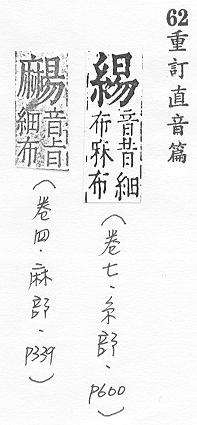 62重訂直音篇
緆 音昔細布麻布
(卷七·糸部·P600)
音 細布
(卷四·麻部·P339)